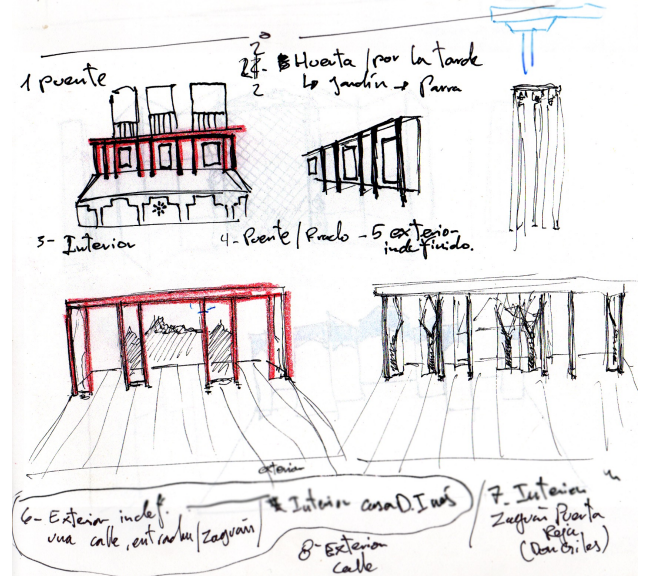 1 puente
2- Huerta / por la tarde
↳ jardín → Parra
3- Interior
4- Puente / Prado - 5 exterior
indefinido.
exterior
6- Exterior indef.
una calle, entrada / zaguán /
Interior casa D. Inés
7- Interior
Zaguán Puerta
Reja
8- Exterior
calle